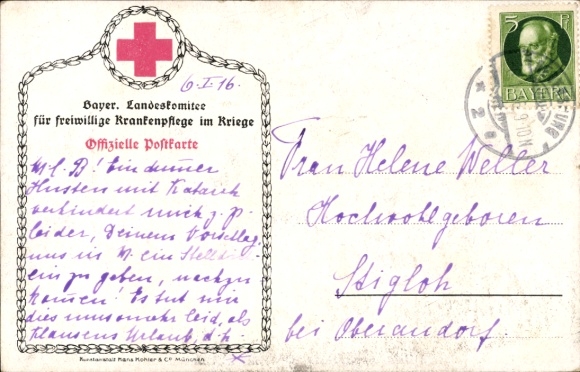 6.I.16.
Bayer. Landeskomitee
für freiwillige Krankenpflege im Kriege
Offizielle Postkarte
M. l. B! Ein dummer
Husten mit Katarrh
verhindert mich z. Z.
leider, Deinem Vorschlag,
uns in M. ein Stelldich-
ein zu geben, nachzu
kommen! Es tut mir
dies umsomehr leid, als
Klausens Urlaub, d. h.
Kunstanstalt Hans Kohler & Co München
5 Pf
BAYERN
Frau Helene Weller
Hochwohlgeboren
Stigloh
bei Oberaudorf.